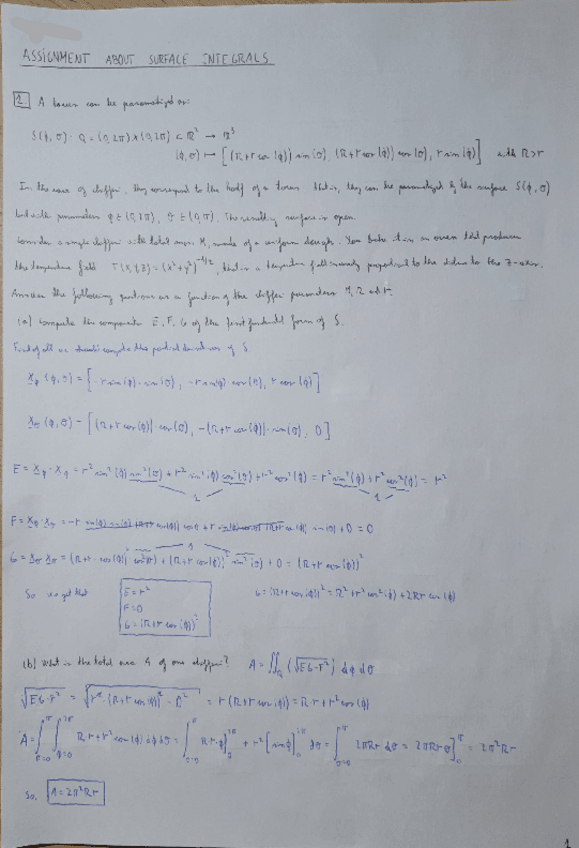 ASSIGNMENT ABOUT SURFACE INTEGRALS
1. A torus can be parametrized as:
S(ϕ, σ): Q = (0,2π)×(0,2π) ⊂ ℝ² → ℝ³
(ϕ, σ) ↦ [(R+r cos(ϕ)) sin(σ), (R+r cos(ϕ)) cos(σ), r sin(ϕ)] with R>r
In the case of , they correspond to the half of a torus. That is, they can be parametrized by the surface S(ϕ, σ)
but with parameters ϕ ∈ (0,2π), σ ∈ (0,π). The resulting surface is open.
Consider a single with total mass M, made of a uniform dough. You bake it in an oven that produces
the temperature field T(x,y,z) = (x²+y²)^(-1/2), that is a temperature proportional to the distance to the z-axis.
Answer the following questions as a function of the parameters M, R and r.
(a) Compute the components E, F, G of the first fundamental form of S.
First of all we should compute the partial derivatives of S
x_ϕ (ϕ, σ) = [-r sin(ϕ)·sin(σ), -r sin(ϕ) cos(σ), r cos(ϕ)]
x_σ (ϕ, σ) = [(R+r cos(ϕ))·cos(σ), -(R+r cos(ϕ))·sin(σ), 0]
E = x_ϕ · x_ϕ = r² sin²(ϕ) sin²(σ) + r² sin²(ϕ) cos²(σ) + r² cos²(ϕ) = r² sin²(ϕ) + r² cos²(ϕ) = r²
1 1
F = x_ϕ · x_σ = -r = 0
1
G = x_σ · x_σ = (R+r cos(ϕ))² cos²(σ) + (R+r cos(ϕ))² sin²(σ) + 0 = (R+r cos(ϕ))²
So we get that E = r² G = (R+r cos(ϕ))² = R² + r² cos²(ϕ) + 2Rr cos(ϕ)
F = 0
G = (R+r cos(ϕ))²
(b) What is the total area A of one ? A = ∬_Q (√(EG-F²)) dϕ dσ
√(EG-F²) = √(r²·(R+r cos(ϕ))² - 0²) = r(R+r cos(ϕ)) = Rr + r² cos(ϕ)
A = ∫_{σ=0}^{π} ∫_{ϕ=0}^{2π} Rr + r² cos(ϕ) dϕ dσ = ∫_{σ=0}^{π} Rrϕ]_0^{2π} + r² [sinϕ]_0^{2π} dσ = ∫_{σ=0}^{π} 2πRr dσ = 2πRr σ]_0^π = 2π²Rr
So, A = 2π²Rr
1